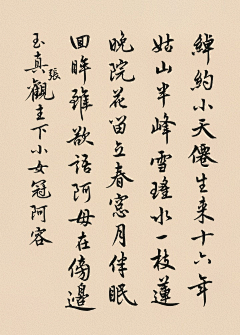 綽約小天僊生来十六年
姑山半峰雪瑤水一枝蓮
晚院花留立春窓月伴眠
囬眸雖欲語阿母在傍邊
玉真張觀主下小女冠阿容